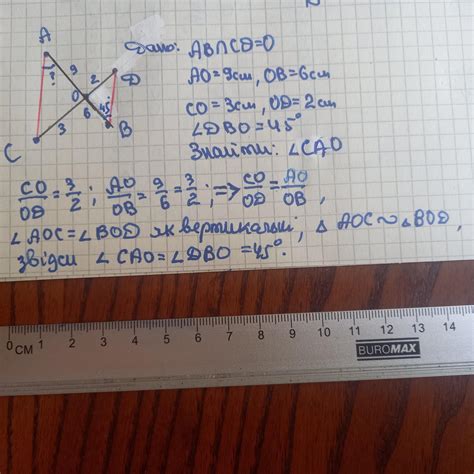 A
9
2
D
?
O
6
45°
3
B
C
Дано: AB∩CD=O
AO=9см, OB=6см
CO=3см, OD=2см
∠DBO=45°
Знайти: ∠CAO
CO/OD = 3/2; AO/OB = 9/6 = 3/2; => CO/OD = AO/OB,
∠AOC=∠BOD як вертикальні, △AOC~△BOD,
звідси ∠CAO=∠DBO=45°.
0 CM 1 2 3 4 5 6 7 8 9 10 11 12 13 14
BUROMAX